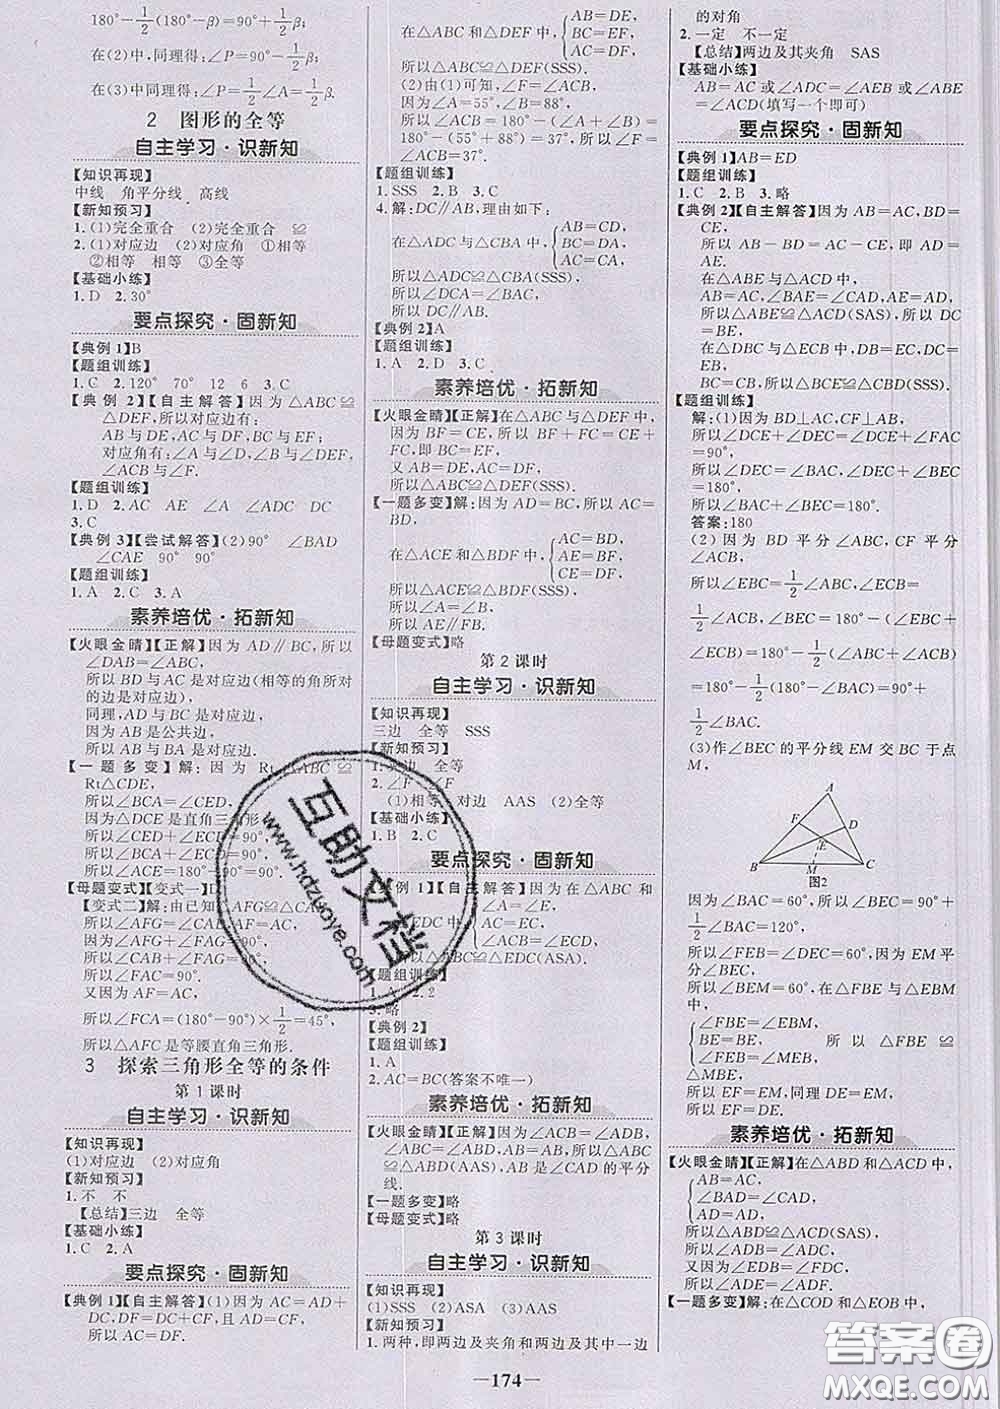 180°-1/2(180°-β)=90°+1/2β
在(2)中,同理得:∠P=90°-1/2β.
在(3)中同理得:∠P=1/2∠A=1/2β.
2 图形的全等
自主学习·识新知
【知识再现】
中线 角平分线 高线
【新知预习】
1.(1)完全重合 (2)完全重合 ≌
2.(1)对应边 (2)对应角 ①相等
②相等 相等 ③全等
【基础小练】
1.D 2.30°
要点探究·固新知
【典例1】B
【题组训练】
1.C 2.120° 70° 12 6 3.C
【典例 2】【自主解答】因为△ABC≌
△DEF,所以对应边有:
AB与DE,AC与DF,BC与EF;
对应角有:∠A与∠D,∠B与∠E,
∠ACB与∠F.
【题组训练】
1.D 2.AC AE ∠A ∠ADC DC
3.C
【典例 3】【尝试解答】(2)90° ∠BAD
∠CAE 90° 90°
【题组训练】
1.A 2.C 3.A
素养培优·拓新知
【火眼金睛】【正解】因为AD∥BC,所以
∠DAB=∠ABC,
所以BD与AC是对应边(相等的角所对
的边是对应边),
同理,AD与BC是对应边,
因为AB是公共边,
所以AB与BA是对应边.
【一题多变】解:因为 Rt△ABC≌
Rt△CDE,
所以∠BCA=∠CED,
因为△DCE是直角三角形
所以∠CED+∠ECD=
所以∠BCA+∠ECD=
所以∠ACE=180°-90°=
【母题变式】【变式一】D
【变式二】解:由已知 AFG≌△
所以∠AFG=∠CAD,AF=AC,
因为∠AFG+∠FAG=90°,
所以∠CAD+∠FAG=90°,
所以∠FAC=90°.
又因为AF=AC,
所以∠FCA=(180°-90°)×1/2=45°,
所以△AFC是等腰直角三角形.
3 探索三角形全等的条件
第1课时
自主学习·识新知
【知识再现】
(1)对应边 (2)对应角
【新知预习】
1.不 不
【总结】三边 全等
【基础小练】
1.C 2.A
要点探究·固新知
【典例1】【自主解答】(1)因为AC=AD+
DC,DF=DC+CF,且AD=CF,
所以AC=DF.
在△ABC和△DEF中,{AB=DE,
BC=EF,
AC=DF,
所以△ABC≌△DEF(SSS).
(2)由(1)可知,∠F=∠ACB,
因为∠A=55°,∠B=88°,
所以∠ACB=180°-(∠A+∠B)=
180°-(55°+88°)=37°,所以∠F=
∠ACB=37°.
【题组训练】
1.SSS 2.B 3.C
4.解:DC∥AB,理由如下:
在△ADC与△CBA中,{AB=CD,
BC=DA,
AC=CA,
所以△ADC≌△CBA(SSS),
所以∠DCA=∠BAC,
所以DC∥AB.
【典例2】A
【题组训练】
1.A 2.D 3.C
素养培优·拓新知
【火眼金睛】【正解】在△ABC与△DEF中,
因为BF=CE,所以BF+FC=CE+
FC,即BC=EF,
又AB=DE,AC=DF,
所以△ABC≌△DEF(SSS).
【一题多变】解:因为AD=BC,所以AC=
BD,
在△ACE和△BDF中,{AC=BD,
AE=BF,
CE=DF,
所以△ACE≌△BDF(SSS),
所以∠A=∠B,
所以AE∥BF.
【母题变式】略
第2课时
自主学习·识新知
【知识再现】
三边 全等 SSS
【新知预习】
1.夹边 全等
2.∠F ∠F
(1)相等 对边 AAS (2)全等
【基础小练】
1.B 2.C
要点探究·固新知
【典例1】【自主解答】在△ABC和
△EDC中,{∠A=∠E,
AC=EC,
∠ACB=∠ECD,
≌△EDC(ASA).
【题组训练】
1.A 2.2
3.略
【典例2】
【题组训练】
1.A
2.AC=BC(答案不唯一)
素养培优·拓新知
【火眼金睛】【正解】因为∠ACB=∠ADB,
∠ABC=∠ABD,AB=AB,所以△ABC
≌△ABD(AAS),所以∠CAD的平分
线.
【一题多变】略
【母题变式】略
第3课时
自主学习·识新知
【知识再现】
(1)SSS (2)ASA (3)AAS
【新知预习】
1.两种,即两边及夹角和两边及其中一边
的对角
2.一定 不一定
【总结】两边及其夹角 SAS
【基础小练】
AB=AC或∠ADC=∠AEB或∠ABE
=∠ACD(填写一个即可)
要点探究·固新知
【典例1】AB=ED
【题组训练】
1.C 2.B 3.略
【典例2】【自主解答】因为AB=AC,BD=
CE,
所以AB-BD=AC-CE,即AD=
AE.
在△ABE与△ACD中,
AB=AC,∠BAE=∠CAD,AE=AD,
所以△ABE≌△ACD(SAS),所以DC
=BE,
在△DBC与△ECB中,DB=EC,DC=
EB,
BC=CB,所以△BCE≌△CBD(SSS).
【题组训练】
解:(1)因为BD⊥AC,CF⊥AB,
所以∠DCE+∠DEC=∠DCE+∠FAC
=90°,
所以∠DEC=∠BAC,∠DEC+∠BEC
=180°,
所以∠BAC+∠BEC=180°.
答案:180
(2)因为BD平分∠ABC,CF平分
∠ACB,
所以∠EBC=1/2∠ABC,∠ECB=
1/2∠ACB,∠BEC=180°-(∠EBC+
∠ECB)=180°-1/2(∠ABC+∠ACB)
=180°-1/2(180°-∠BAC)=90°+
1/2∠BAC.
(3)作∠BEC的平分线EM交BC于点
M,
A
F D
E
B M C
图2
因为∠BAC=60°,所以∠BEC=90°+
1/2∠BAC=120°,
所以∠FEB=∠DEC=60°,因为EM平
分∠BEC,
所以∠BEM=60°,在△FBE与△EBM
中,
{∠FBE=∠EBM,
BE=BE, 所以△FBE≌
∠FEB=∠MEB,
△MBE,
所以EF=EM,同理DE=EM,
所以EF=DE.
素养培优·拓新知
【火眼金睛】【正解】在△ABD和△ACD中,
{AB=AC,
∠BAD=∠CAD,
AD=AD,
所以△ABD≌△ACD(SAS),
所以∠ADB=∠ADC,
又因为∠BDE=∠CDF,
所以∠ADE=∠ADF.
【一题多变】解:在△COD和△EOB中,
—174—
互助文档
www.hdzuoye.com
答案圈
MXQE.COM